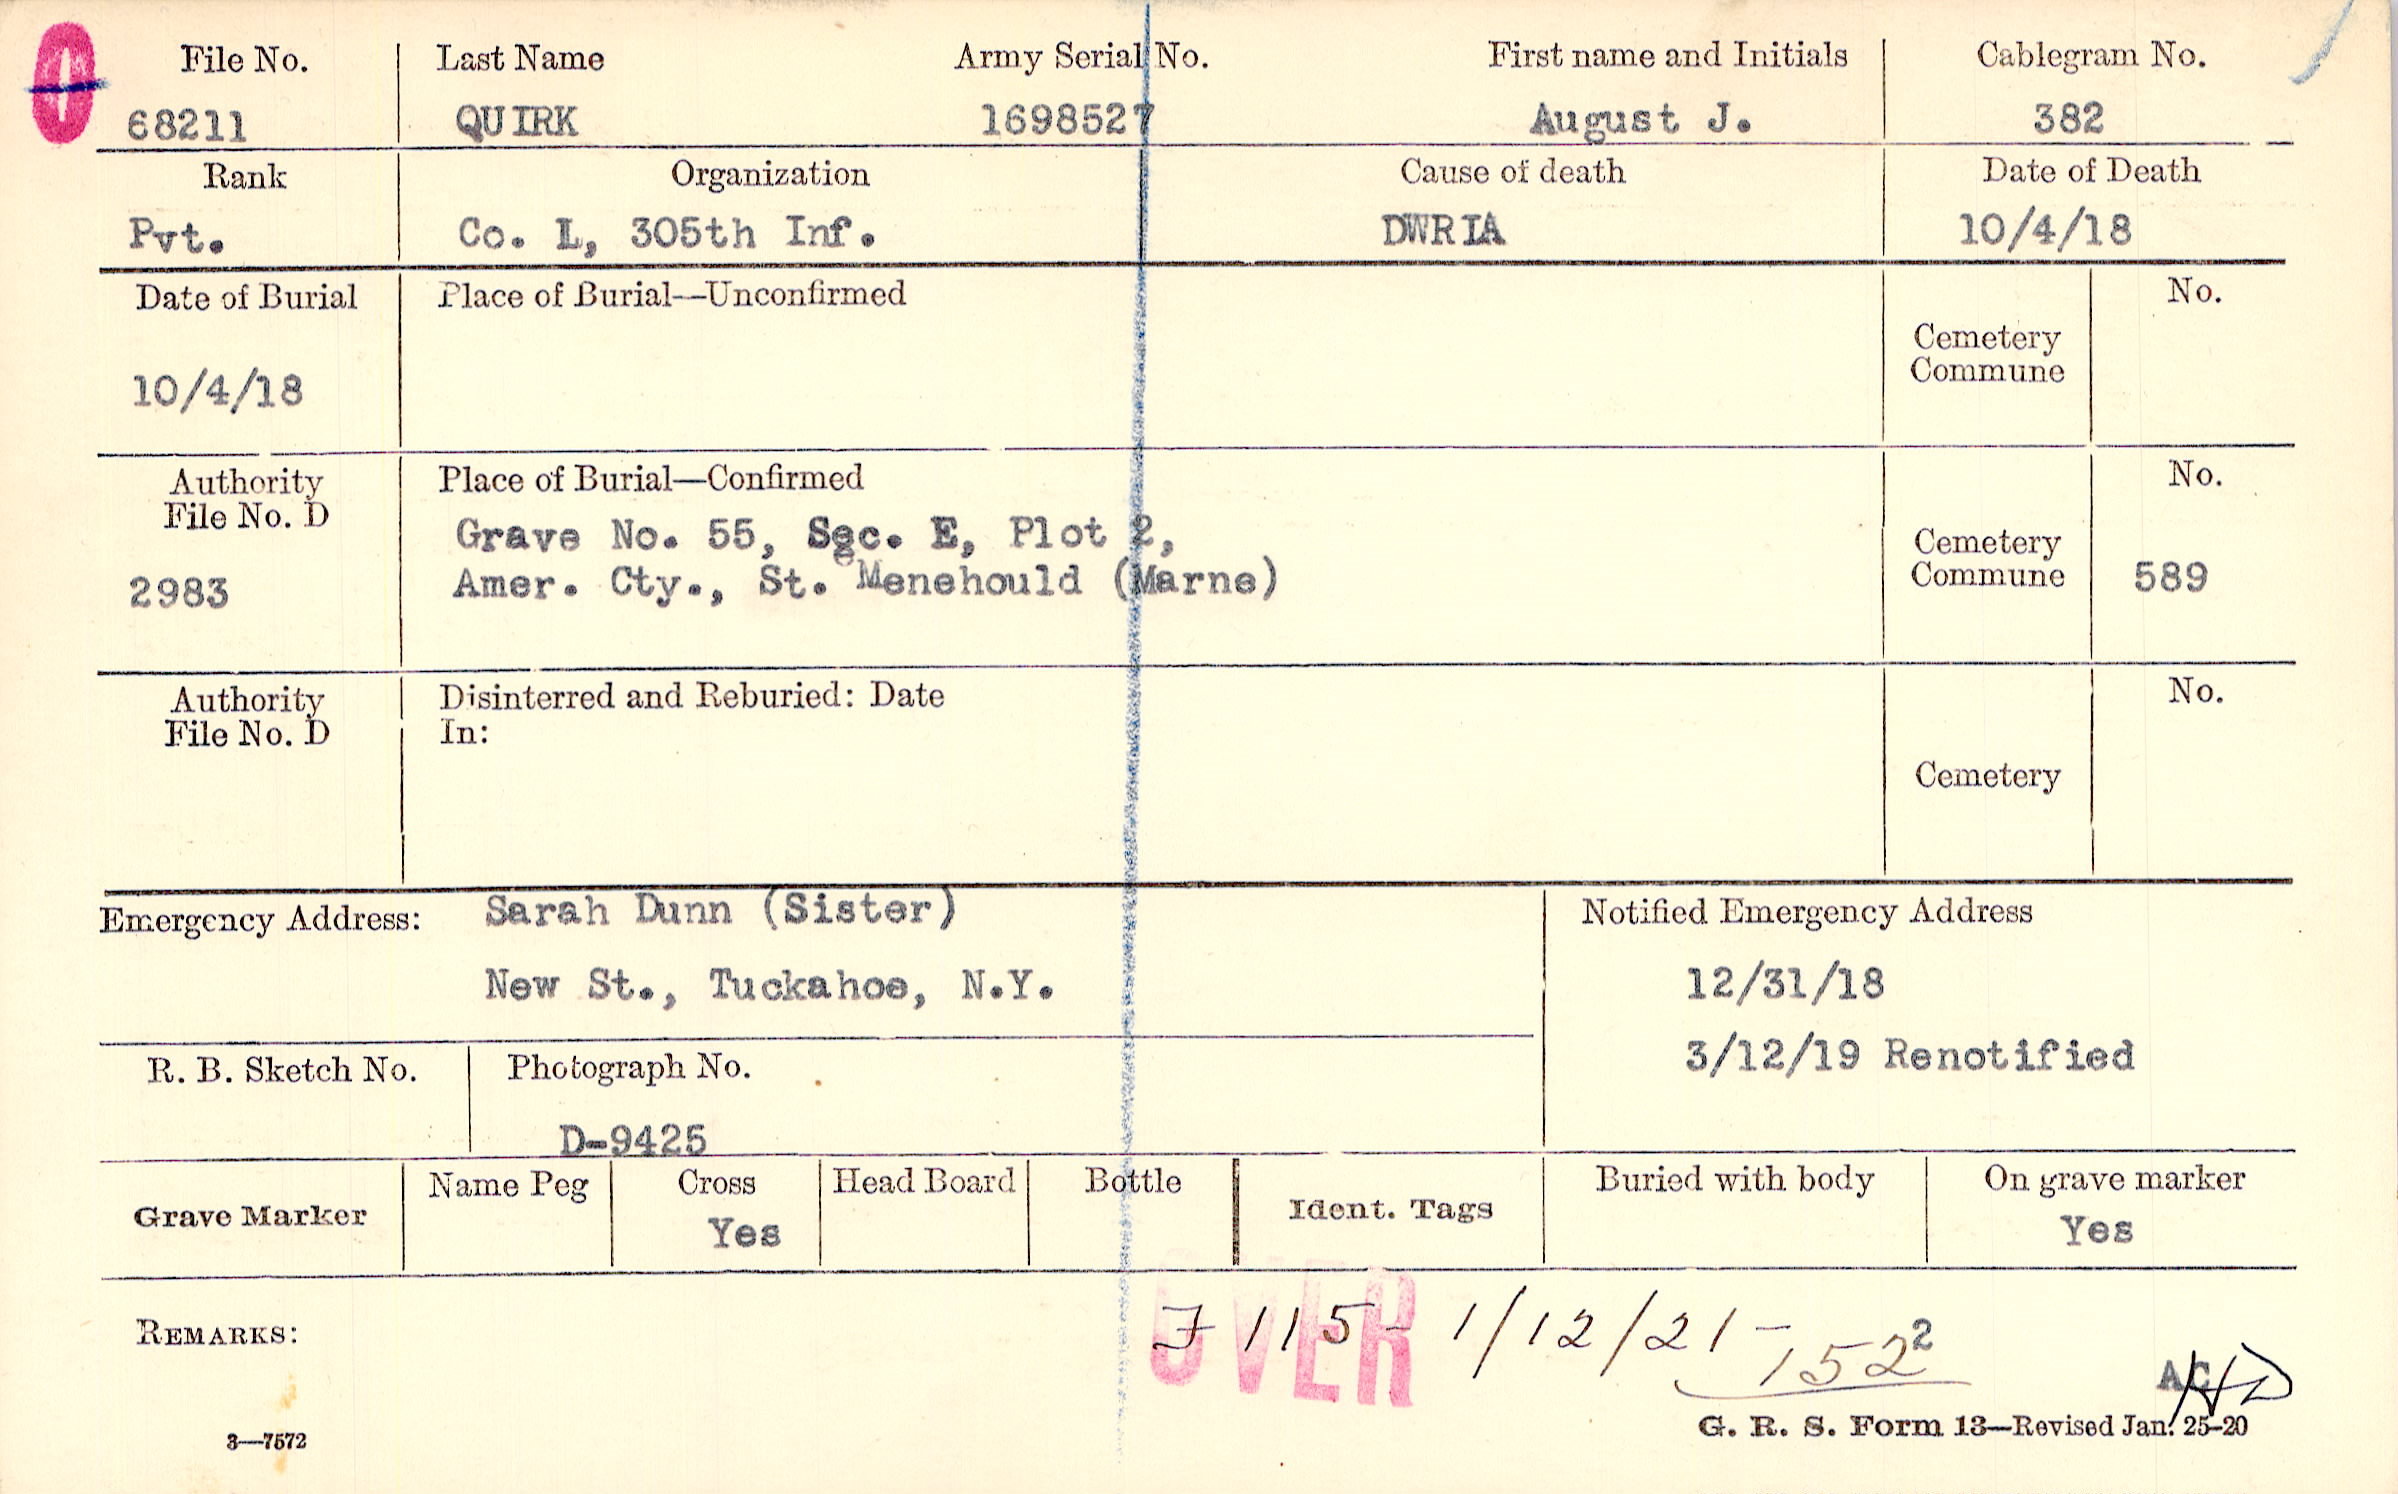 File No. Last Name Army Serial No. First name and Initials Cablegram No.
68211 QUIRK 1698527 August J. 382
Rank Organization Cause of death Date of Death
Pvt. Co. L, 305th Inf. DWRIA 10/4/18
Date of Burial Place of Burial—Unconfirmed No.
Cemetery
Commune
10/4/18
Authority Place of Burial—Confirmed No.
File No. D
Grave No. 55, Sec. E, Plot 2, Cemetery
2983 Amer. Cty., St. Menehould (Marne) Commune 589
Authority Disinterred and Reburied: Date No.
File No. D In:
Cemetery
Emergency Address: Sarah Dunn (Sister) Notified Emergency Address
New St., Tuckahoe, N.Y. 12/31/18
3/12/19 Renotified
R. B. Sketch No. Photograph No.
D-9425
Grave Marker Name Peg Cross Head Board Bottle Ident. Tags Buried with body On grave marker
Yes Yes
OVER
REMARKS: 115 - 1/12/21 - 152 2
AC
3—7572 G. R. S. Form 13—Revised Jan. 25-20